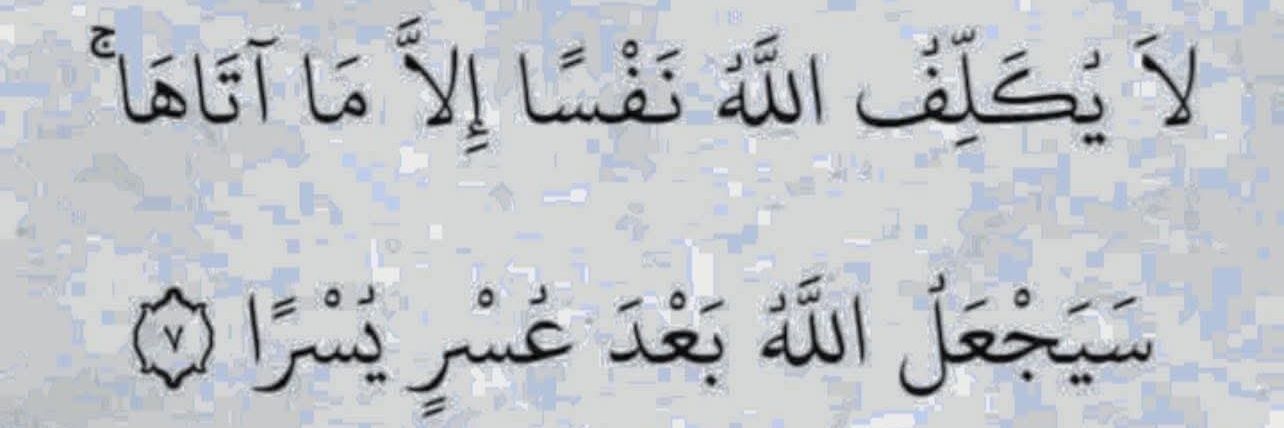 لاَ يُكَلِّفُ اللَّهُ نَفْسًا إِلاَّ مَا آتَاهَا ۚ
سَيَجْعَلُ اللَّهُ بَعْدَ عُسْرٍ يُسْرًا ﴿٧﴾